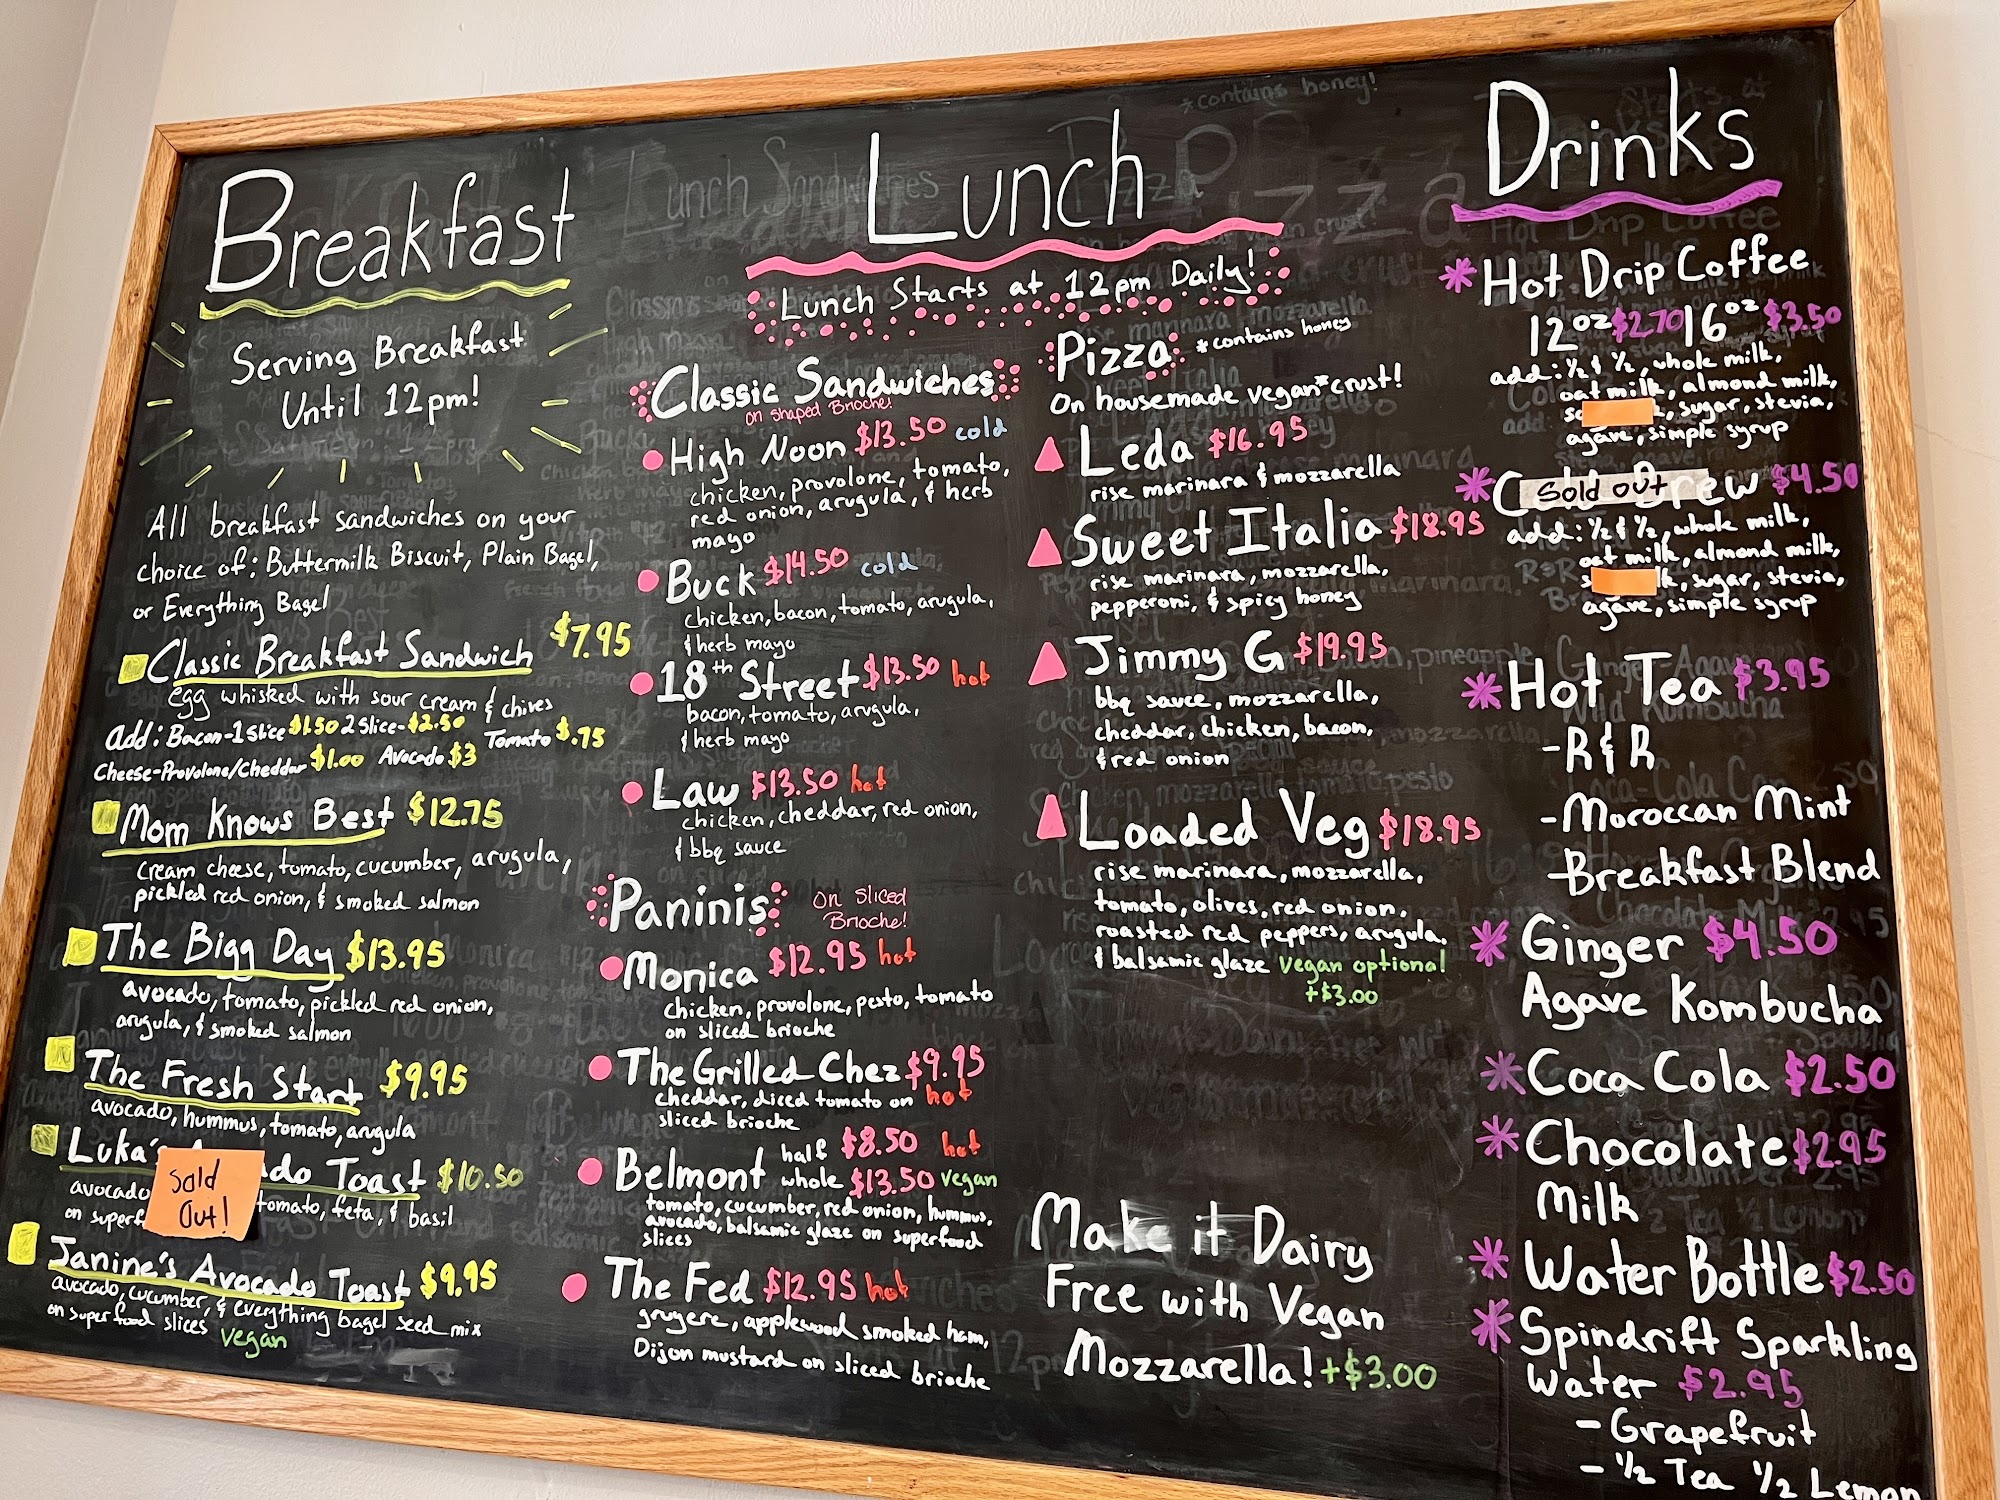 Breakfast
Serving Breakfast
Until 12pm!
All breakfast sandwiches on your
choice of: Buttermilk Biscuit, Plain Bagel,
or Everything Bagel
Classic Breakfast Sandwich $7.95
egg whisked with sour cream & chives
Add: Bacon-1 Slice $1.50 2 Slice-$2.50 Tomato $.75
Cheese-Provolone/Cheddar $1.00 Avocado $3
Mom Knows Best $12.75
cream cheese, tomato, cucumber, arugula,
pickled red onion, & smoked salmon
The Bigg Day $13.95
avocado, tomato, pickled red onion,
arugula, & smoked salmon
The Fresh Start $9.95
avocado, hummus, tomato, arugula
Luka's Toast $10.50
Sold
Out!
avocado tomato, feta, & basil
on
Janine's Avocado Toast $9.95
avocado, cucumber, & everything bagel seed mix
on superfood slices vegan
Lunch
Lunch Starts at 12pm Daily!
Classic Sandwiches
on shaped Brioche!
High Noon $13.50 cold
chicken, provolone, tomato,
red onion, arugula, & herb
mayo
Buck $14.50 cold
chicken, bacon, tomato, arugula,
& herb mayo
18th Street $13.50 hot
bacon, tomato, arugula,
& herb mayo
Law $13.50 hot
chicken, cheddar, red onion,
& bbq sauce
Paninis On Sliced
Brioche!
Monica $12.95 hot
chicken, provolone, pesto, tomato
on sliced brioche
The Grilled Chez $9.95
cheddar, diced tomato on hot
sliced brioche
Belmont half $8.50 hot
whole $13.50 vegan
tomato, cucumber, red onion, hummus,
avocado, balsamic glaze on superfood
slices
The Fed $12.95 hot
gruyere, applewood smoked ham,
Dijon mustard on sliced brioche
Pizza *contains honey
On housemade vegan* crust!
Leda $16.95
rise marinara & mozzarella
Sweet Italia $18.95
rise marinara, mozzarella,
pepperoni, & spicy honey
Jimmy G $19.95
bbq sauce, mozzarella,
cheddar, chicken, bacon,
& red onion
Loaded Veg $18.95
rise marinara, mozzarella,
tomato, olives, red onion,
roasted red peppers, arugula,
& balsamic glaze vegan optional
+$3.00
Make it Dairy
Free with Vegan
Mozzarella! +$3.00
Drinks
Hot Drip Coffee
12oz $2.70 16oz $3.50
add: ½ & ½, whole milk,
oat milk, almond milk,
sugar, stevia,
agave, simple syrup
Sold Out $4.50
add: ½ & ½, whole milk,
oat milk, almond milk,
sugar, stevia,
agave, simple syrup
Hot Tea $3.95
- R & R
- Moroccan Mint
- Breakfast Blend
Ginger $4.50
Agave Kombucha
Coca Cola $2.50
Chocolate $2.95
Milk
Water Bottle $2.50
Spindrift Sparkling
Water $2.95
- Grapefruit
- ½ Tea ½ Lemon